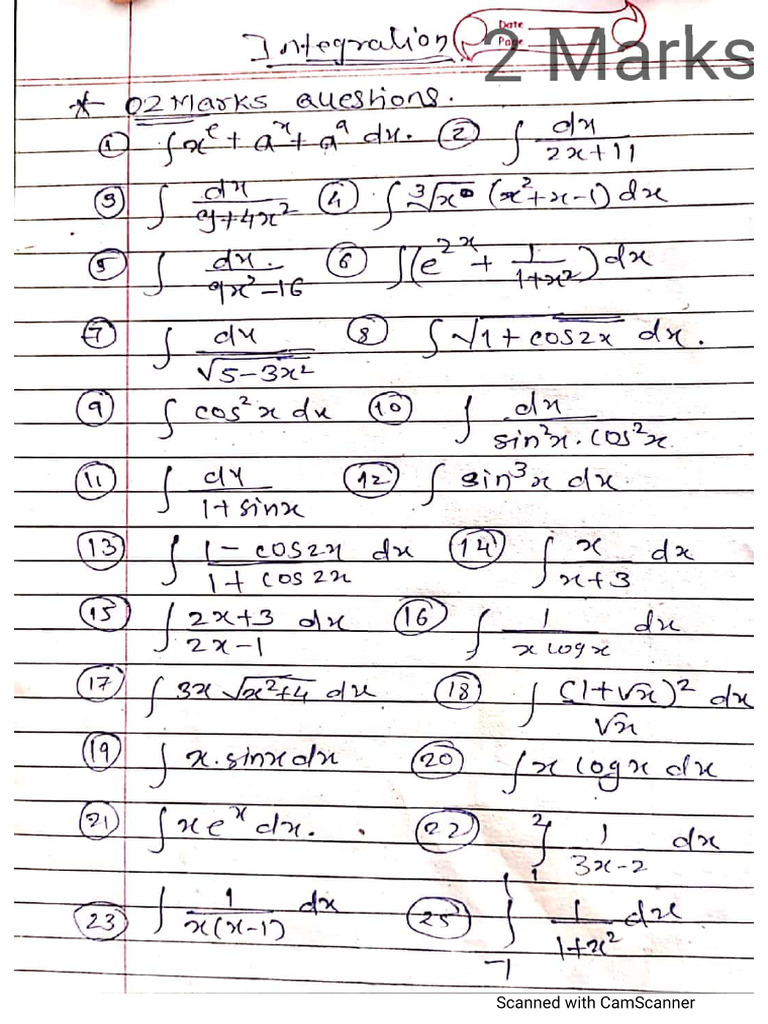 Integration
Date
Page
2 Marks
* 02 Marks questions.
① ∫ x^e + a^x + a^a dx. ② ∫ dx/(2x+11)
③ ∫ dx/(9+4x²) ④ ∫ ∛x (x²+x-1) dx
⑤ ∫ dx./(9x²-16) ⑥ ∫(e^2x + 1/(1+x²)) dx
⑦ ∫ dx/√(5-3x²) ⑧ ∫ √(1+cos2x) dx.
⑨ ∫ cos²x dx ⑩ ∫ dx/(sin²x.cos²x)
⑪ ∫ dx/(1+sinx) ⑫ ∫ sin³x dx.
⑬ ∫ (1-cos2x)/(1+cos2x) dx ⑭ ∫ x/(x+3) dx
⑮ ∫ (2x+3)/(2x-1) dx ⑯ ∫ 1/(x logx) dx
⑰ ∫ 3x √(x²+4) dx ⑱ ∫ (1+√x)²/√x dx
⑲ ∫ x.sinx dx ⑳ ∫ x logx dx
㉑ ∫ xe^x dx. ㉒ ∫₁² 1/(3x-2) dx
㉓ ∫ 1/(x(x-1)) dx ㉕ ∫₋₁¹ 1/(1+x²) dx
Scanned with CamScanner